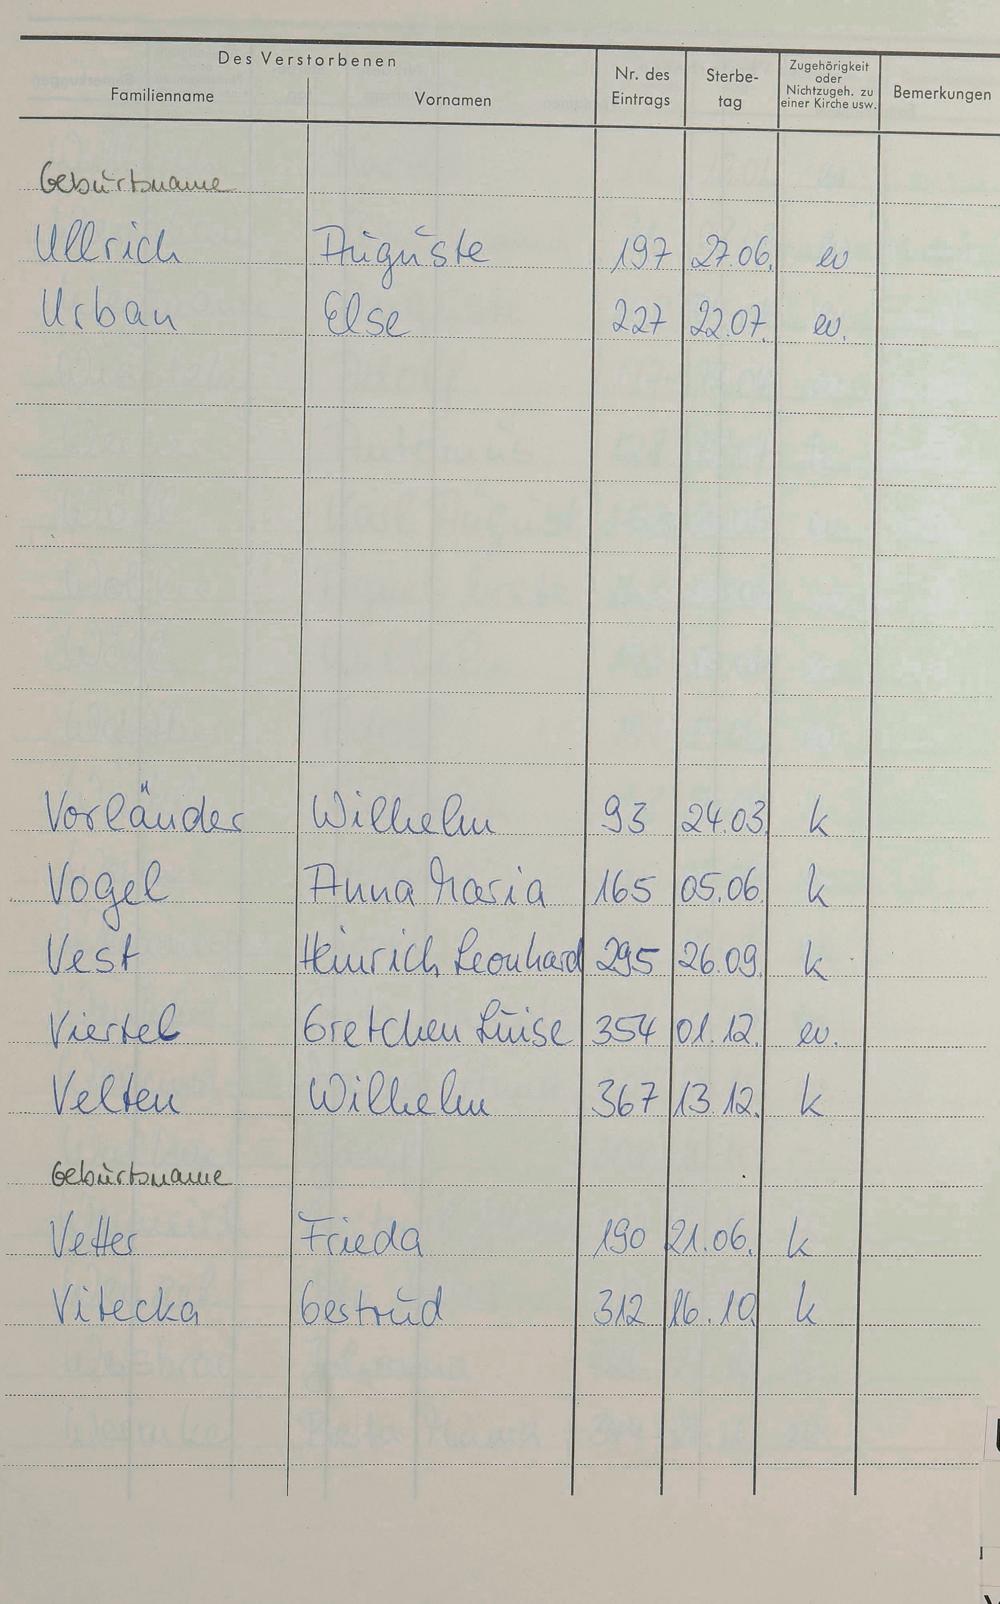 Des Verstorbenen
Familienname Vornamen Nr. des Eintrags Sterbe-tag Zugehörigkeit oder Nichtzugeh. zu einer Kirche usw. Bemerkungen
Geburtsname
Ullrich Auguste 197 27.06. ev
Urban Else 227 22.07. ev.
Vorländer Wilhelm 93 24.03 k
Vogel Anna Maria 165 05.06 k
Vest Heinrich Leonhard 295 26.09. k
Viertel Gretchen Luise 354 01.12. ev.
Velten Wilhelm 367 13.12. k
Geburtsname
Vetter Frieda 190 21.06. k
Vitecka Gertrud 312 16.10. k